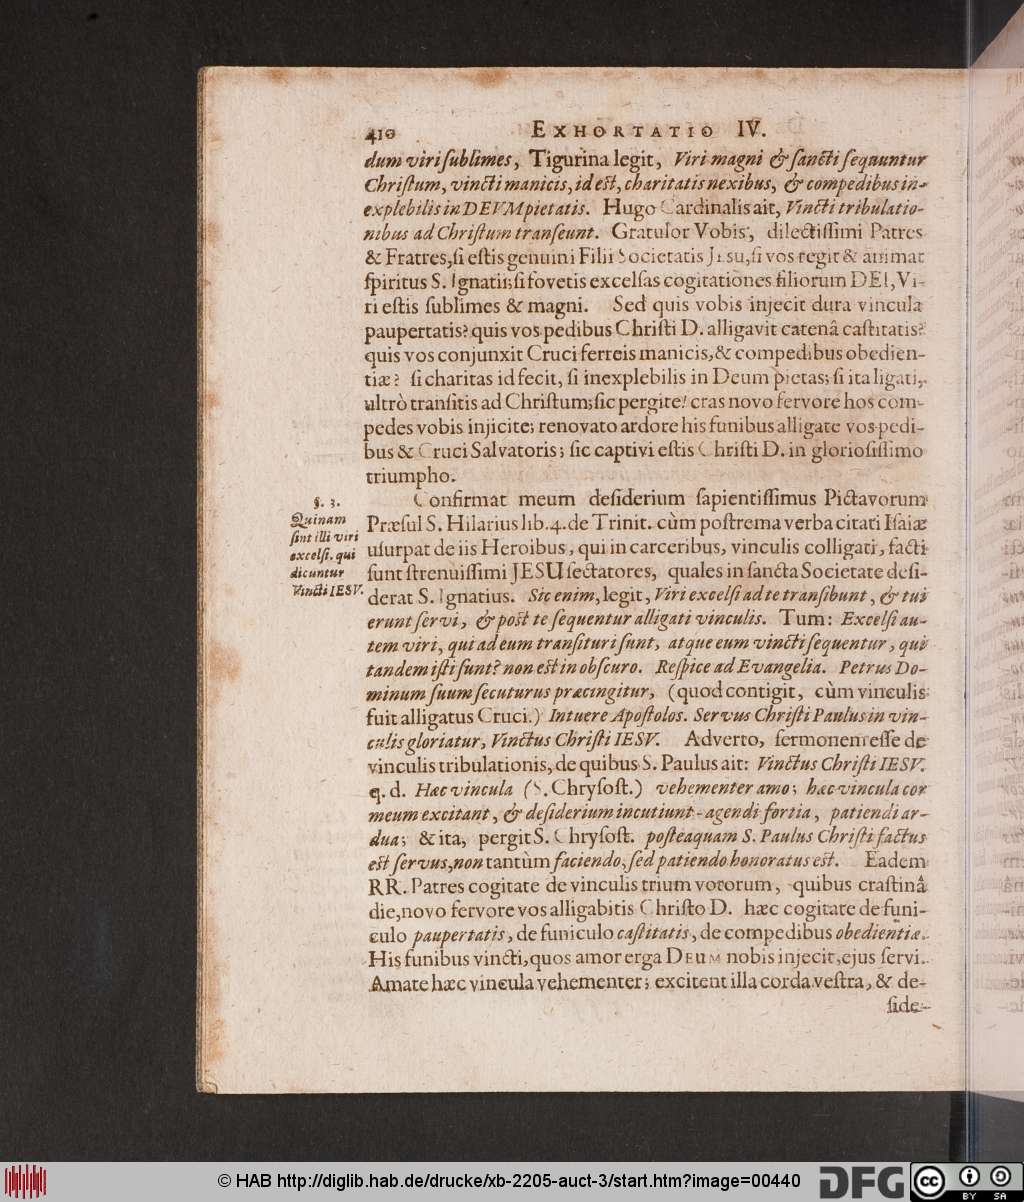 410 EXHORTATIO IV.
dum viri ſublimes, Tigurina legit, Viri magni & ſancti ſequuntur
Chriſtum, vincti manicis, id eſt, charitatis nexibus, & compedibus in-
explebilis in DEVM pietatis. Hugo Cardinalis ait, Vincti tribulatio-
nibus ad Chriſtum tranſeunt. Gratulor Vobis, dilectiſſimi Patres
& Fratres, ſi eſtis genuini Filii Societatis JESU, ſi vos regit & animat
ſpiritus S. Ignatii; ſi fovetis excelſas cogitationes filiorum DEI, Vi-
ri eſtis ſublimes & magni. Sed quis vobis injecit dura vincula
paupertatis? quis vos pedibus Chriſti D. alligavit catenâ caſtitatis?
quis vos conjunxit Cruci ferreis manicis, & compedibus obedien-
tiæ? ſi charitas id fecit, ſi inexplebilis in Deum pietas; ſi ita ligati,
ultrò tranſitis ad Chriſtum; ſic pergite! cras novo fervore hos com-
pedes vobis injicite; renovato ardore his funibus alligate vos pedi-
bus & Cruci Salvatoris; ſic captivi eſtis Chriſti D. in glorioſiſſimo
triumpho.
§. 3.
Quinam
ſint illi viri
excelſi, qui
dicuntur
Vincti IESV.
Confirmat meum deſiderium ſapientiſſimus Pictavorum
Præſul S. Hilarius lib. 4. de Trinit. cùm poſtrema verba citati Iſaiæ
uſurpat de iis Heroibus, qui in carceribus, vinculis colligati, facti
ſunt ſtrenuiſſimi JESU ſectatores, quales in ſancta Societate deſi-
derat S. Ignatius. Sic enim, legit, Viri excelſi ad te tranſibunt, & tui
erunt ſervi, & poſt te ſequentur alligati vinculis. Tum: Excelſi au-
tem viri, qui ad eum tranſituri ſunt, atque eum vincti ſequentur, qui
tandem iſti ſunt? non eſt in obſcuro. Reſpice ad Evangelia. Petrus Do-
minum ſuum ſecuturus præcingitur, (quod contigit, cùm vinculis
fuit alligatus Cruci.) Intuere Apoſtolos. Servus Chriſti Paulus in vin-
culis gloriatur, Vinctus Chriſti IESV. Adverto, ſermonem eſſe de
vinculis tribulationis, de quibus S. Paulus ait: Vinctus Chriſti IESV.
q. d. Hæc vincula (S. Chryſoſt.) vehementer amo; hæc vincula cor
meum excitant, & deſiderium incutiunt agendi fortia, patiendi ar-
dua; & ita, pergit S. Chryſoſt. poſteaquam S. Paulus Chriſti factus
eſt ſervus, non tantùm faciendo, ſed patiendo honoratus eſt. Eadem
RR. Patres cogitate de vinculis trium votorum, quibus craſtinâ
die, novo fervore vos alligabitis Chriſto D. hæc cogitate de funi-
culo paupertatis, de funiculo caſtitatis, de compedibus obedientiæ.
His funibus vincti, quos amor erga DEUM nobis injecit, ejus ſervi.
Amate hæc vincula vehementer; excitent illa corda veſtra, & de-
ſide-
© HAB http://diglib.hab.de/drucke/xb-2205-auct-3/start.htm?image=00440
DFG
cc
BY SA